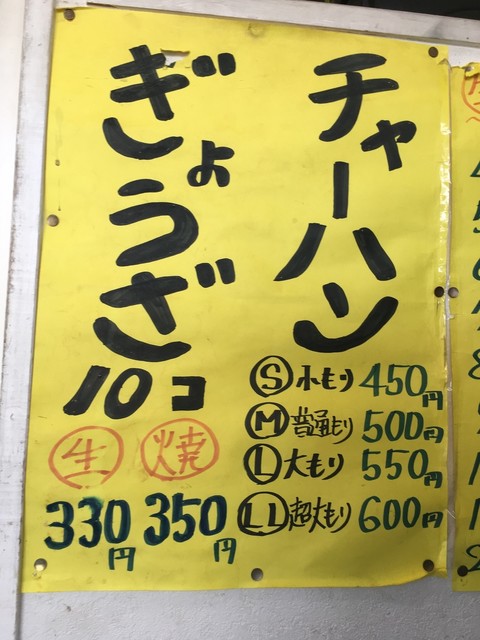 チャーハン
Ⓢ小もり 450円
Ⓜ普通もり 500円
Ⓛ大もり 550円
LL超大もり 600円
ぎょうざ
10コ
生 焼
330円 350円